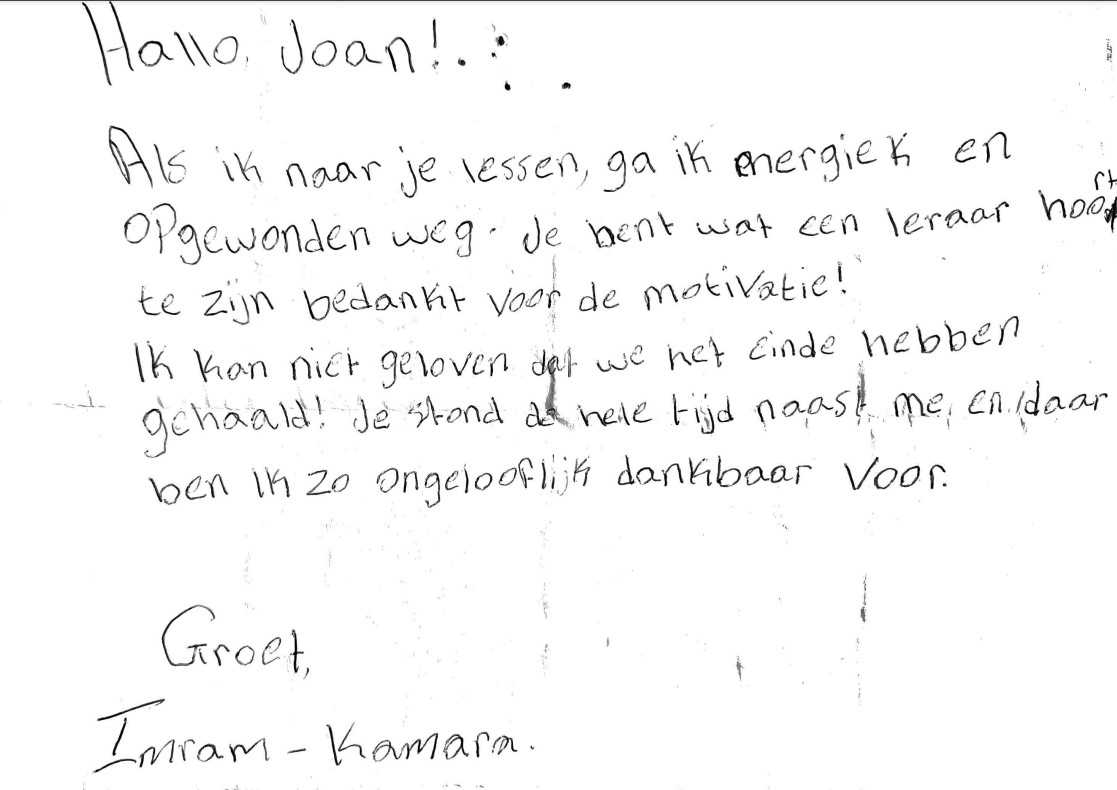 Hallo, Joan!
Als ik naar je lessen, ga ik energiek en
opgewonden weg. Je bent wat een leraar hoort
te zijn bedankt voor de motivatie!
Ik kan niet geloven dat we het einde hebben
gehaald! Je stond de hele tijd naast me, en daar
ben ik zo ongelooflijk dankbaar voor.
Groet,
Imram - Kamara.